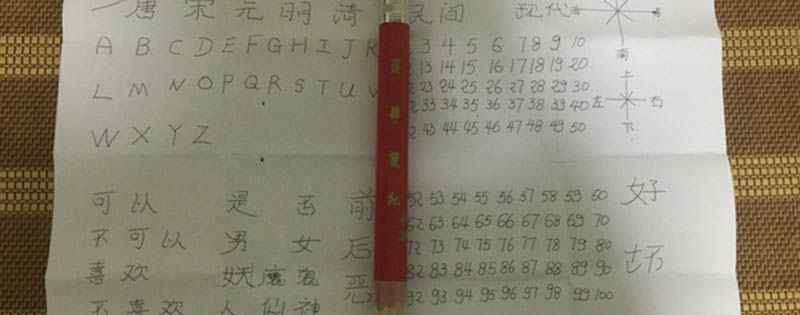 唐 宋 元 明 清 民国 现代
A B C D E F G H I J K 3 4 5 6 7 8 9 10
南
上
13 14 15 16 17 18 19 20
L M N O P Q R S T U V 24 25 26 27 28 29 30
33 34 35 36 37 38 39 40 左 右
W X Y Z 43 44 45 46 47 48 49 50 下
可以 是 否 前 52 53 54 55 56 57 58 59 60 好
62 63 64 65 66 67 68 69 70
不可以 男 女 后 73 74 75 76 77 78 79 80 坏
喜欢 妖魔鬼 恶 82 83 84 85 86 87 88 89 90
不喜欢 人 仙 神 92 93 94 95 96 97 98 99 100